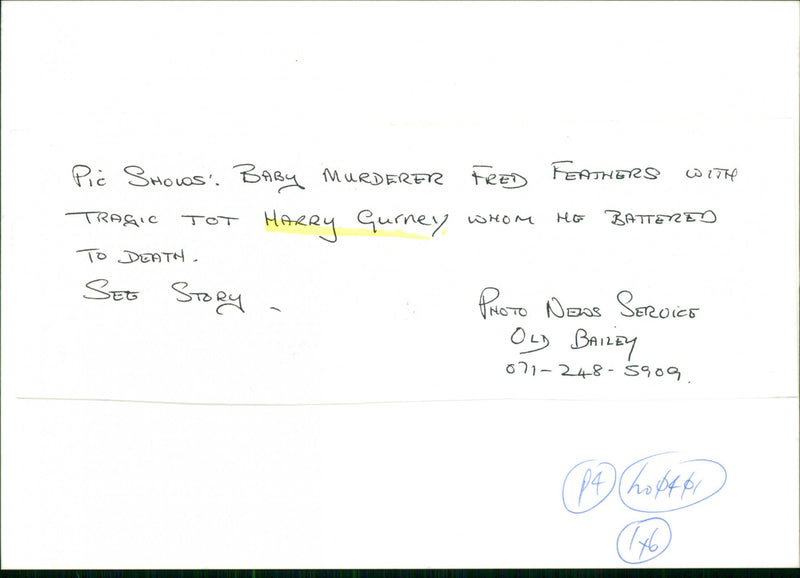 Pic Shows: Baby Murderer Fred Feathers with
tragic tot Harry Gurney whom he battered
to death.
See Story -
Photo News Service
Old Bailey
071-248-5909.
P4
1x6